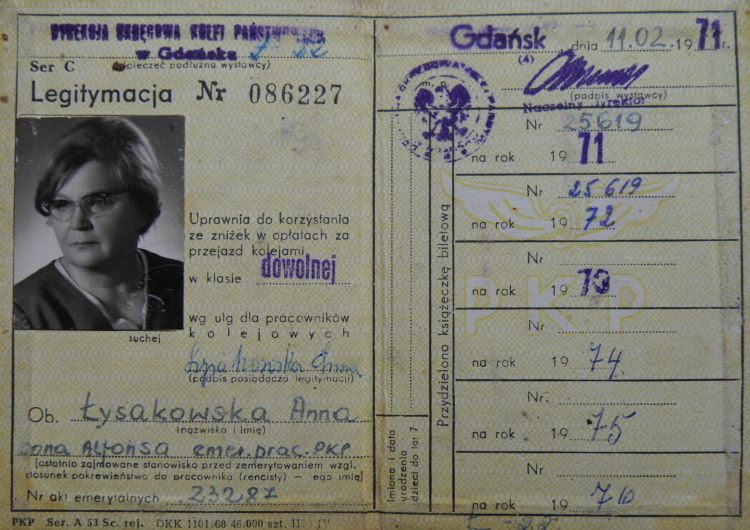 DYREKCJA OKRĘGOWA KOLEI PAŃSTWOWYCH
w Gdańsku
Ser C (pieczęć podłużna wystawcy)
Legitymacja Nr 086227
Uprawnia do korzystania
ze zniżek w opłatach za
przejazd kolejami
w klasie dowolnej
wg ulg dla pracowników
kolejowych
suchej
Łysakowska Anna
(podpis posiadacza legitymacji)
Ob. Łysakowska Anna
(nazwisko i imię)
żona Alfonsa emer. prac. PKP
(ostatnio zajmowane stanowisko przed zemerytowaniem wzgl.
stosunek pokrewieństwa do pracownika (rencisty) — ego imię)
Nr akt emerytalnych 23287
PKP Ser. A 53 Sc. rej. DKK 1101 68 46.000 szt.
Gdańsk, dnia 11.02. 1971 r.
(4)
(podpis wystawcy)
Naczelny Dyrektor
Imiona i data
urodzenia
dzieci do lat 7
Przydzielono książeczkę biletową
Nr 25619
na rok 1971
Nr 25619
na rok 1972
Nr
na rok 1973
Nr
na rok 1974
Nr
na rok 1975
Nr
na rok 19
PKP